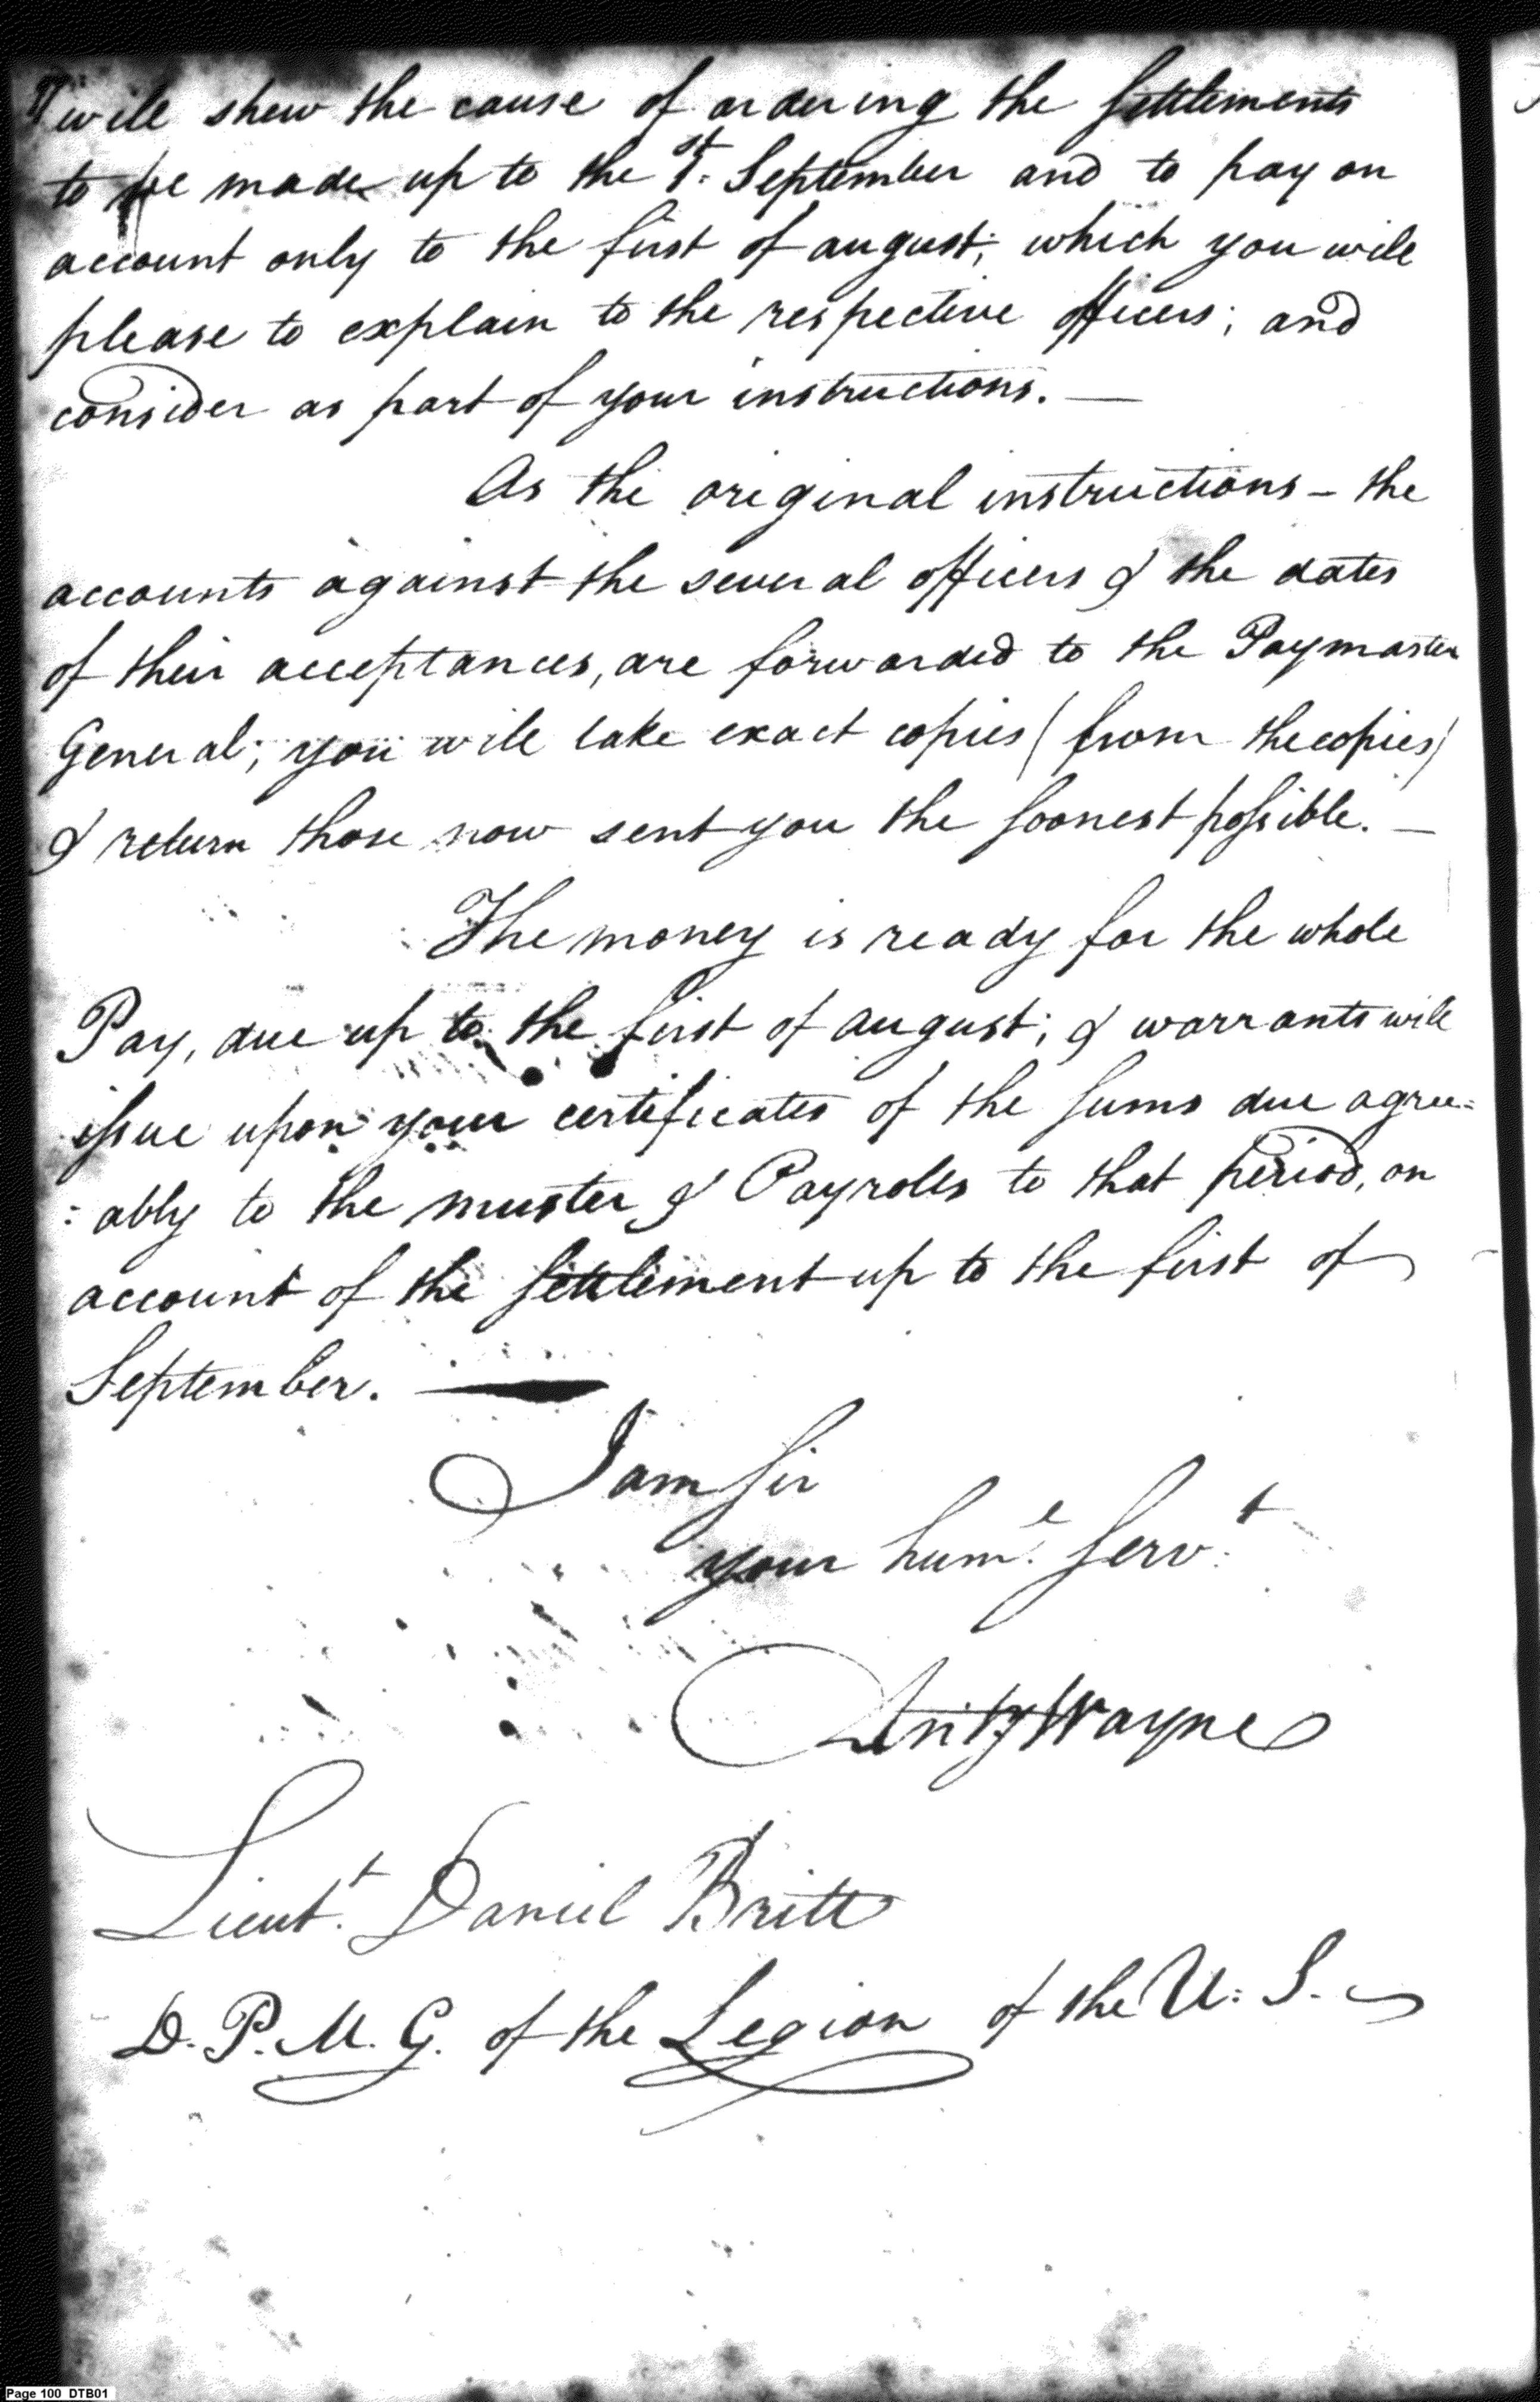 will shew the cause of ordering the Settlements
to be made up to the 1st. September and to pay on
account only to the first of august; which you will
please to explain to the respective officers; and
consider as part of your instructions. —
As the original instructions - the
accounts against the several officers & the dates
of their acceptances, are forwarded to the Paymaster
General; you will take exact copies (from the copies)
& return those now sent you the soonest possible. —
The money is ready for the whole
Pay, due up to the first of august; & warrants will
issue upon your certificates of the sums due agree=
:ably to the muster & Payrolls to that period, on
account of the Settlement up to the first of
September. —
I am Sir
your humle. Servt.
Anty Wayne
Lieut. Daniel Britt
D. P. M. G. of the Legion of the U. S.
Page 100 DTB01